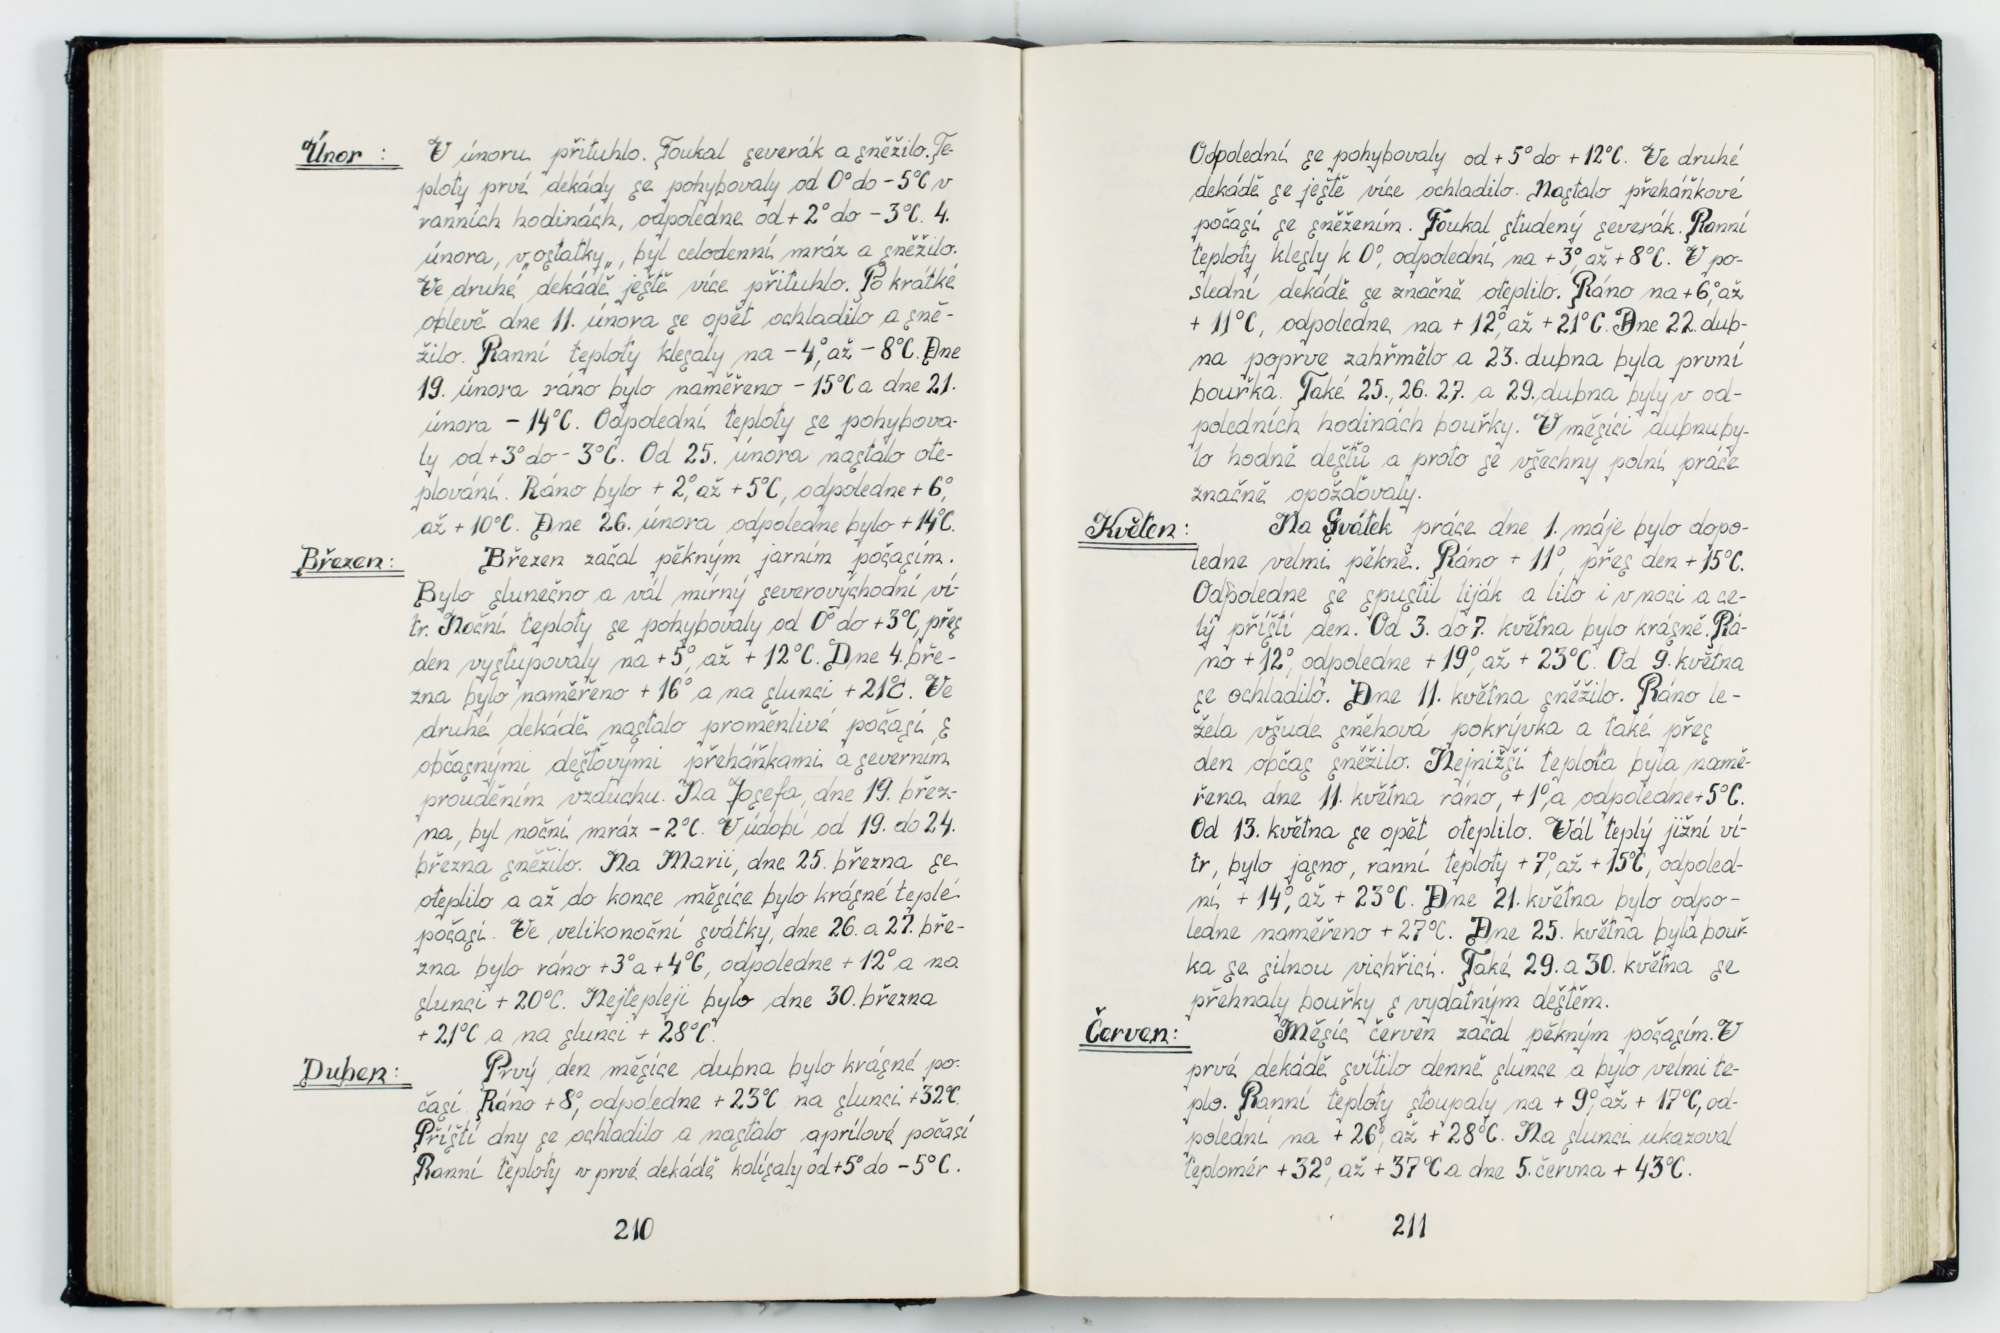 Únor : V únoru přituhlo. Foukal severák a sněžilo. Te-
ploty prvé dekády se pohybovaly od 0° do -5°C v
ranních hodinách, odpoledne od +2° do -3°C. 4.
února, v „ostatky„, byl celodenní mráz a sněžilo.
Ve druhé dekádě ještě více přituhlo. Po krátké
oblevě dne 11. února se opět ochladilo a sně-
žilo. Ranní teploty klesaly na -4°, až -8°C. Dne
19. února ráno bylo naměřeno -15°C a dne 21.
února -14°C. Odpolední teploty se pohybova-
ly od +3° do -3°C. Od 25. února nastalo ote-
plování. Ráno bylo +2°, až +5°C, odpoledne +6°,
až +10°C. Dne 26. února odpoledne bylo +14°C.
Březen: Březen začal pěkným jarním počasím.
Bylo slunečno a vál mírný severovýchodní ví-
tr. Noční teploty se pohybovaly od 0° do +3°C, přes
den vystupovaly na +5°, až +12°C. Dne 4. bře-
zna bylo naměřeno +16° a na slunci +21°C. Ve
druhé dekádě nastalo proměnlivé počasí s
občasnými dešťovými přeháňkami a severním
prouděním vzduchu. Na Josefa, dne 19. břez-
na, byl noční mráz -2°C. V údobí od 19. do 24.
března sněžilo. Na Marii, dne 25. března se
oteplilo a až do konce měsíce bylo krásné teplé
počasí. Ve velikonoční svátky, dne 26. a 27. bře-
zna bylo ráno +3° a +4°C, odpoledne +12° a na
slunci +20°C. Nejtepleji bylo dne 30. března
+21°C a na slunci +28°C.
Duben: Prvý den měsíce dubna bylo krásné po-
časí. Ráno +8°, odpoledne +23°C na slunci +32°C.
Příští dny se ochladilo a nastalo aprílové počasí
Ranní teploty v prvé dekádě kolísaly od +5° do -5°C.
210
Odpolední se pohybovaly od +5° do +12°C. Ve druhé
dekádě se ještě více ochladilo. Nastalo přeháňkové
počasí se sněžením. Foukal studený severák. Ranní
teploty klesly k 0°, odpolední na +3°, až +8°C. V po-
slední dekádě se značně oteplilo. Ráno na +6°, až
+11°C, odpoledne na +12°, až +21°C. Dne 22. dub-
na poprve zahřmělo a 23. dubna byla první
bouřka. Také 25., 26. 27. a 29. dubna byly v od-
poledních hodinách bouřky. V měsíci dubnu by-
lo hodně dešťů a proto se všechny polní práce
značně opožďovaly.
Květen: Na Svátek práce dne 1. máje bylo dopo-
ledne velmi pěkně. Ráno +11°, přes den +15°C.
Odpoledne se spustil liják a lilo i v noci a ce-
lý příští den. Od 3. do 7. května bylo krásně. Rá-
no +12°, odpoledne +19°, až +23°C. Od 9. května
se ochladilo. Dne 11. května sněžilo. Ráno le-
žela všude sněhová pokrývka a také přes
den občas sněžilo. Nejnižší teplota byla namě-
řena dne 11. května ráno, +1°, a odpoledne +5°C.
Od 13. května se opět oteplilo. Vál teplý jižní ví-
tr, bylo jasno, ranní teploty +7°, až +15°C, odpoled-
ní +14°, až +23°C. Dne 21. května bylo odpo-
ledne naměřeno +27°C. Dne 25. května byla bouř-
ka se silnou vichřicí. Také 29. a 30. května se
přehnaly bouřky s vydatným deštěm.
Červen: Měsíc červen začal pěkným počasím. V
prvé dekádě svítilo denně slunce a bylo velmi te-
plo. Ranní teploty stoupaly na +9°, až +17°C, od-
polední na +26°, až +28°C. Na slunci ukazoval
teploměr +32°, až +37°C a dne 5. června +43°C.
211